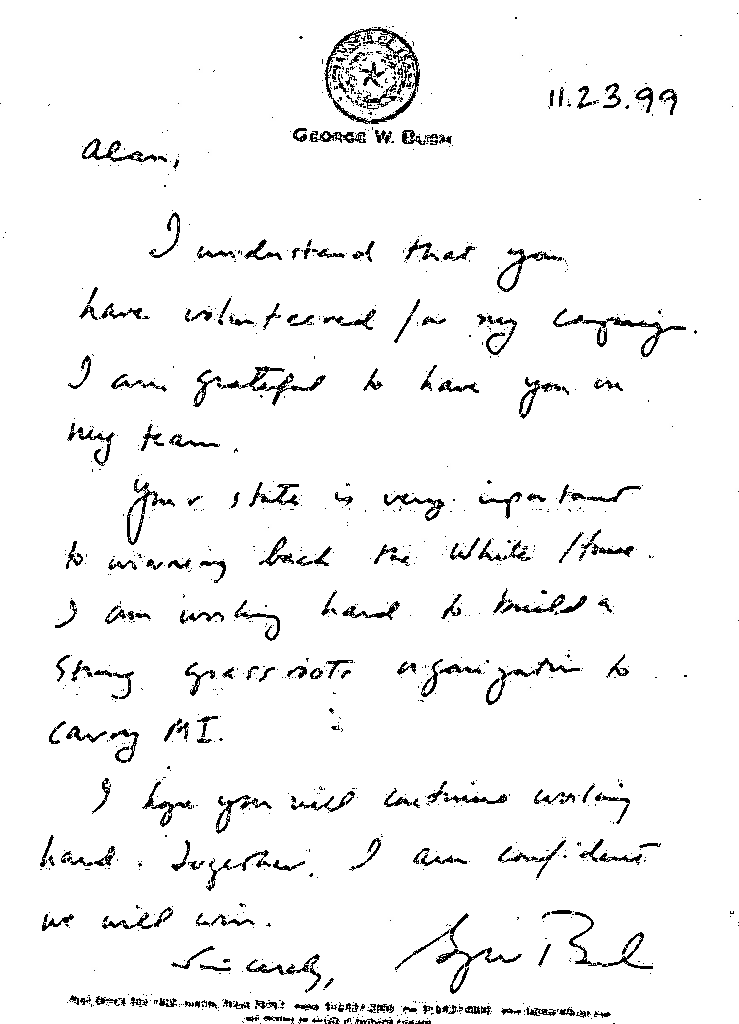 11.23.99
GEORGE W. BUSH
Alan,
I understand that you
have volunteered for my campaign.
I am grateful to have you on
my team.
Your state is very important
to winning back the White House.
I am working hard to build a
strong grassroots organization to
carry MI.
I hope you will continue working
hard. Together, I am confident
we will win.
Sincerely, George Bush